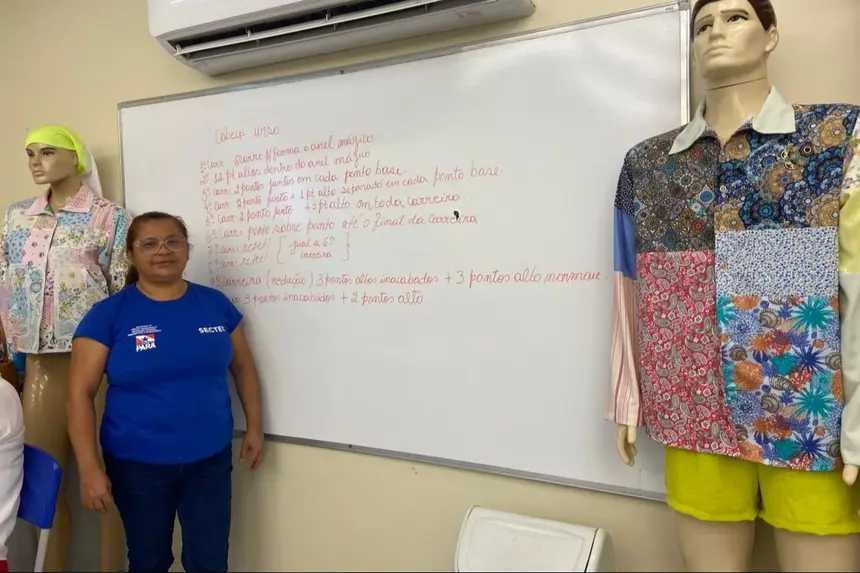 Cabeça urso
1ª Carr. 5 corre p/ forma o anel mágico
2ª 12 pt altos dentro do anel mágio
3ª carr. 2 pontos juntos em cada ponto base.
4ª Carr. 2 ponto junto + 1 pt alto separado em cada ponto base.
5ª Carr 2 ponto junto + 3 pt alto em toda Carreira.
6ª Carr. ponto sobre ponto até o final da Carreira
7ª carr. repeti [igual a 6ª
8ª carr. repeti carreira]
9ª Carreira (redução) 3 pontos altos inacabados + 3 pontos alto
carr 3 pontos inacabados + 2 pontos alto
SECTET
PARÁ